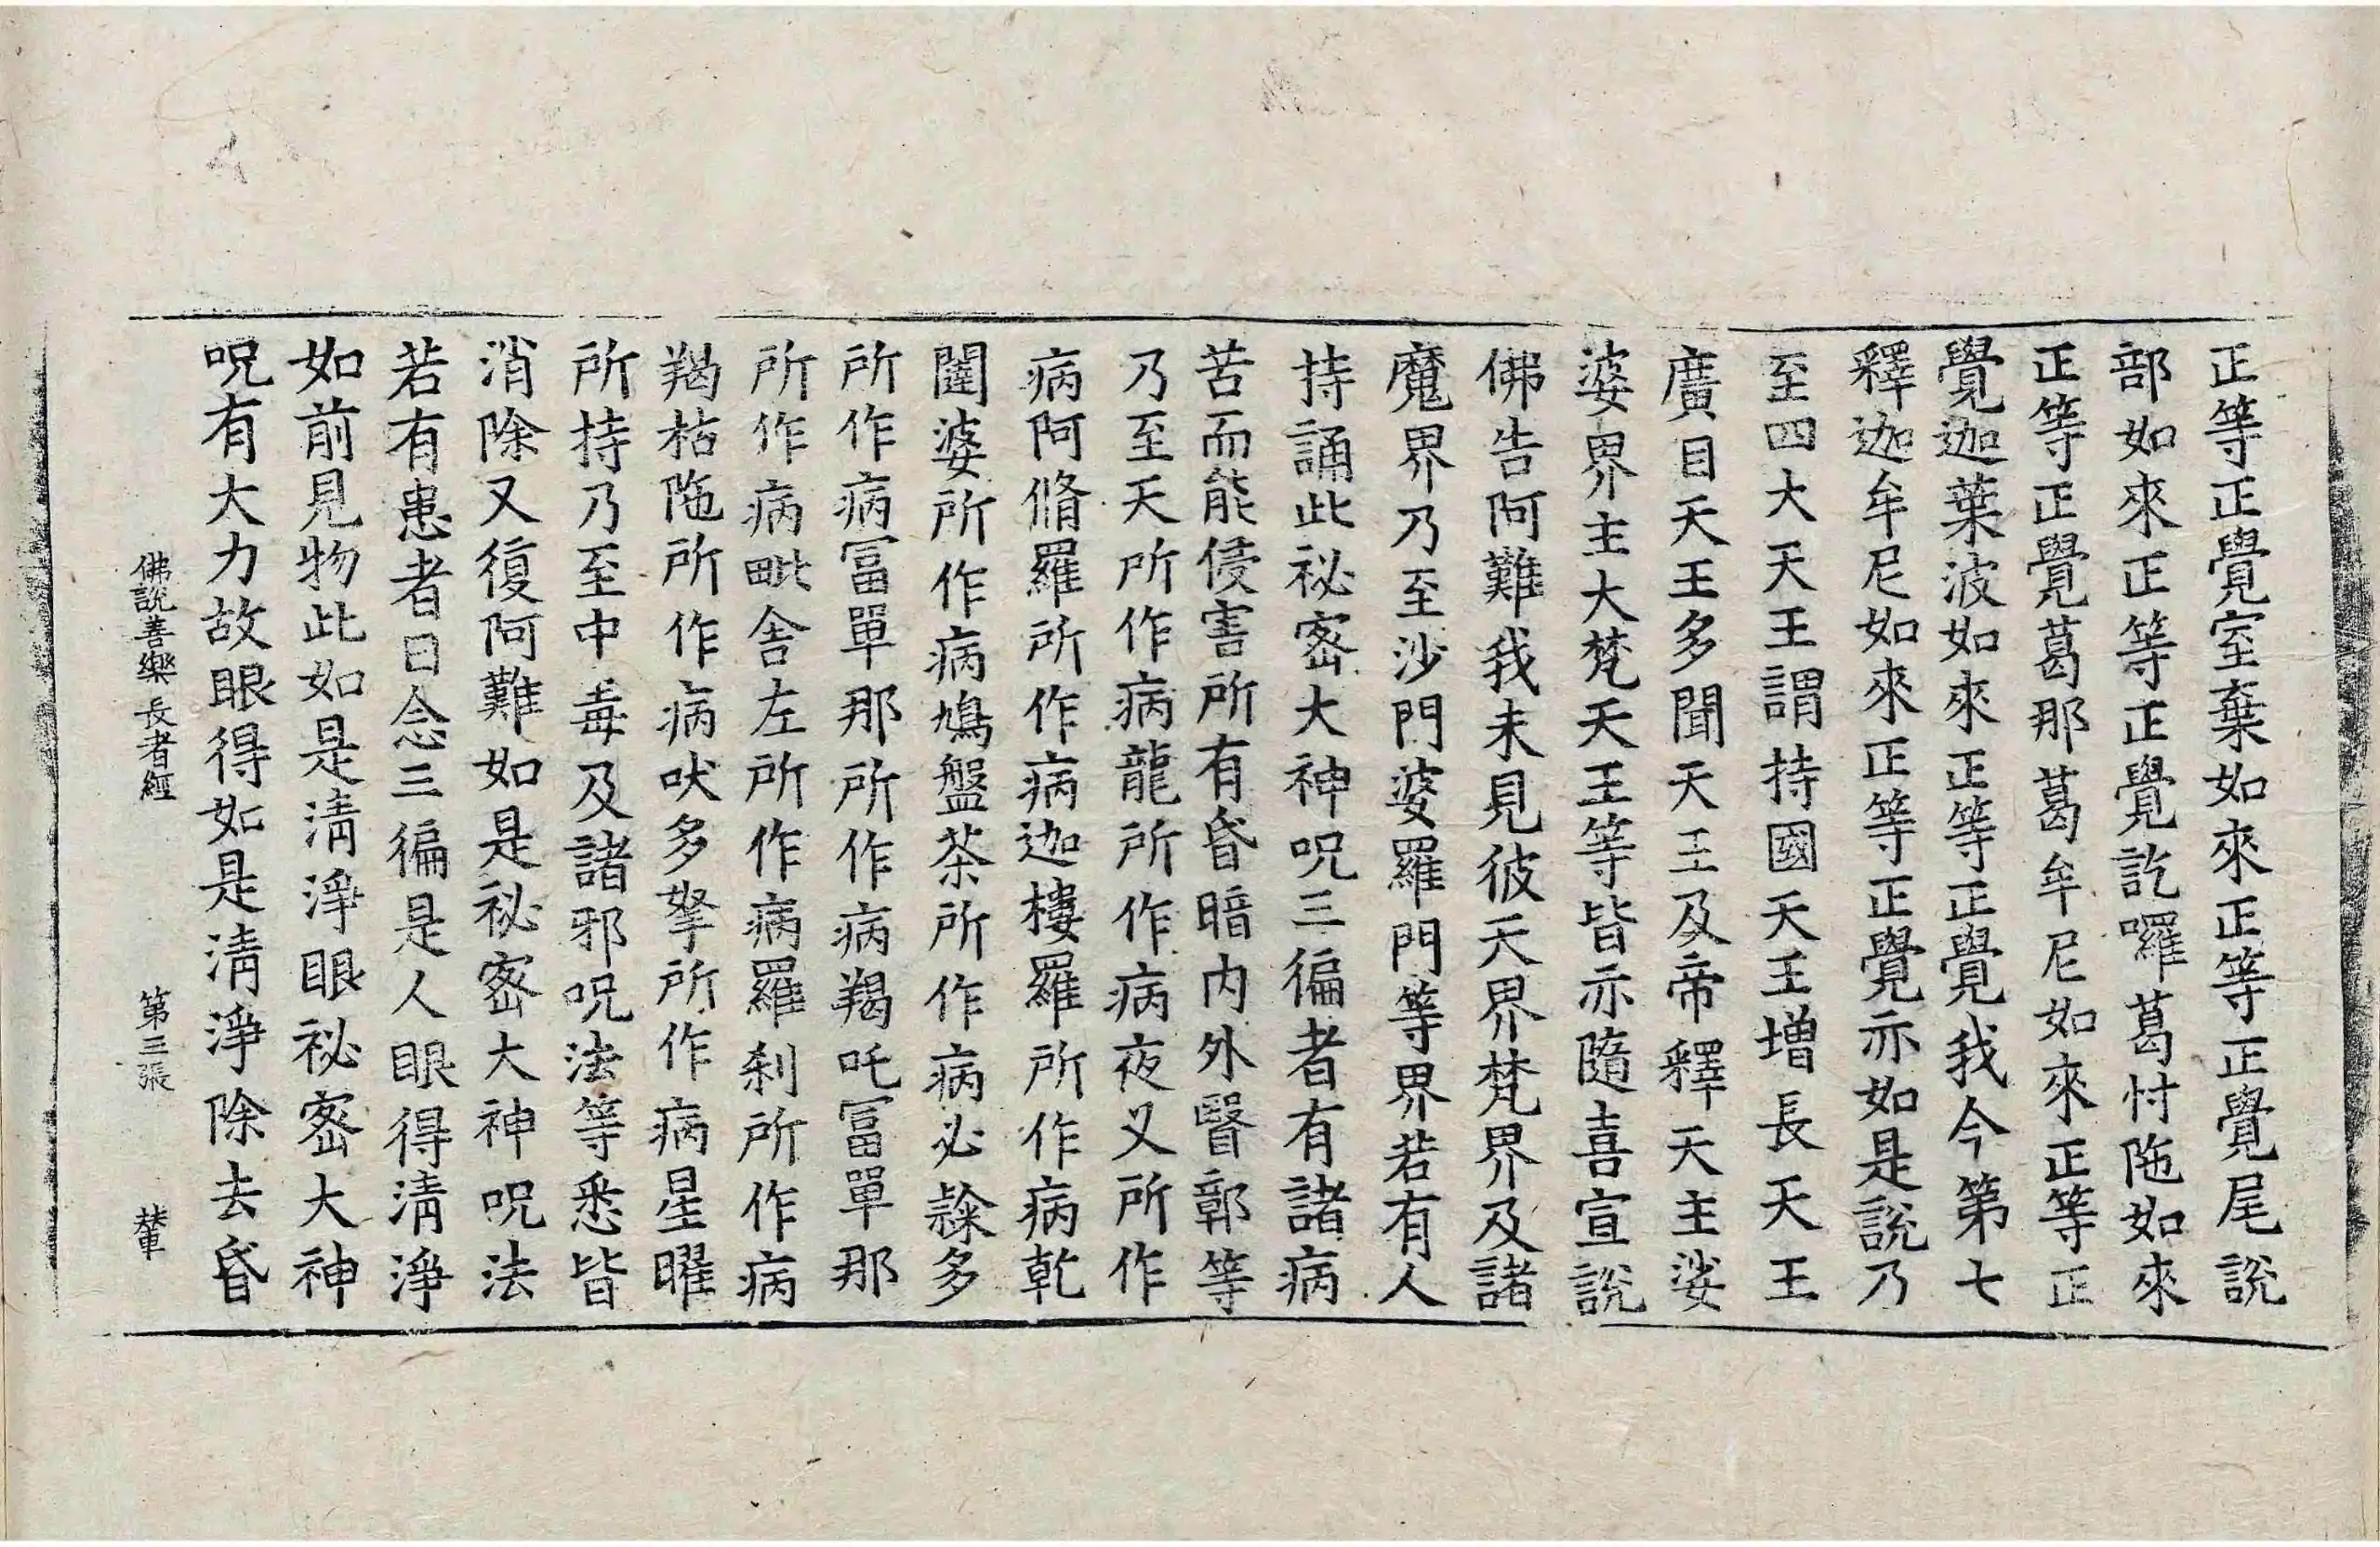 正等正覺室棄如來正等正覺尾說
部如來正等正覺訖囉葛忖陁如來
正等正覺葛那葛牟尼如來正等正
覺迦葉波如來正等正覺我今第七
釋迦牟尼如來正等正覺亦如是說乃
至四大天王謂持國天王增長天王
廣目天王多聞天王及帝釋天主娑
婆界主大梵天王等皆亦隨喜宣說
佛告阿難我未見彼天界梵界及諸
魔界乃至沙門婆羅門等界若有人
持誦此祕密大神呪三徧者有諸病
苦而能侵害所有昏暗内外瞖鄣等
乃至天所作病龍所作病夜叉所作
病阿脩羅所作病迦樓羅所作病乾
闥婆所作病鳩盤茶所作病必隸多
所作病冨單那所作病羯吒冨單那
所作病毗舍左所作病羅刹所作病
羯枯陁所作病吠多拏所作病星曜
所持乃至中毒及諸邪呪法等悉皆
消除又復阿難如是祕密大神呪法
若有患者日念三徧是人眼得清淨
如前見物此如是清淨眼祕密大神
呪有大力故眼得如是清淨除去昏
佛說善樂長者經 第三張 輦